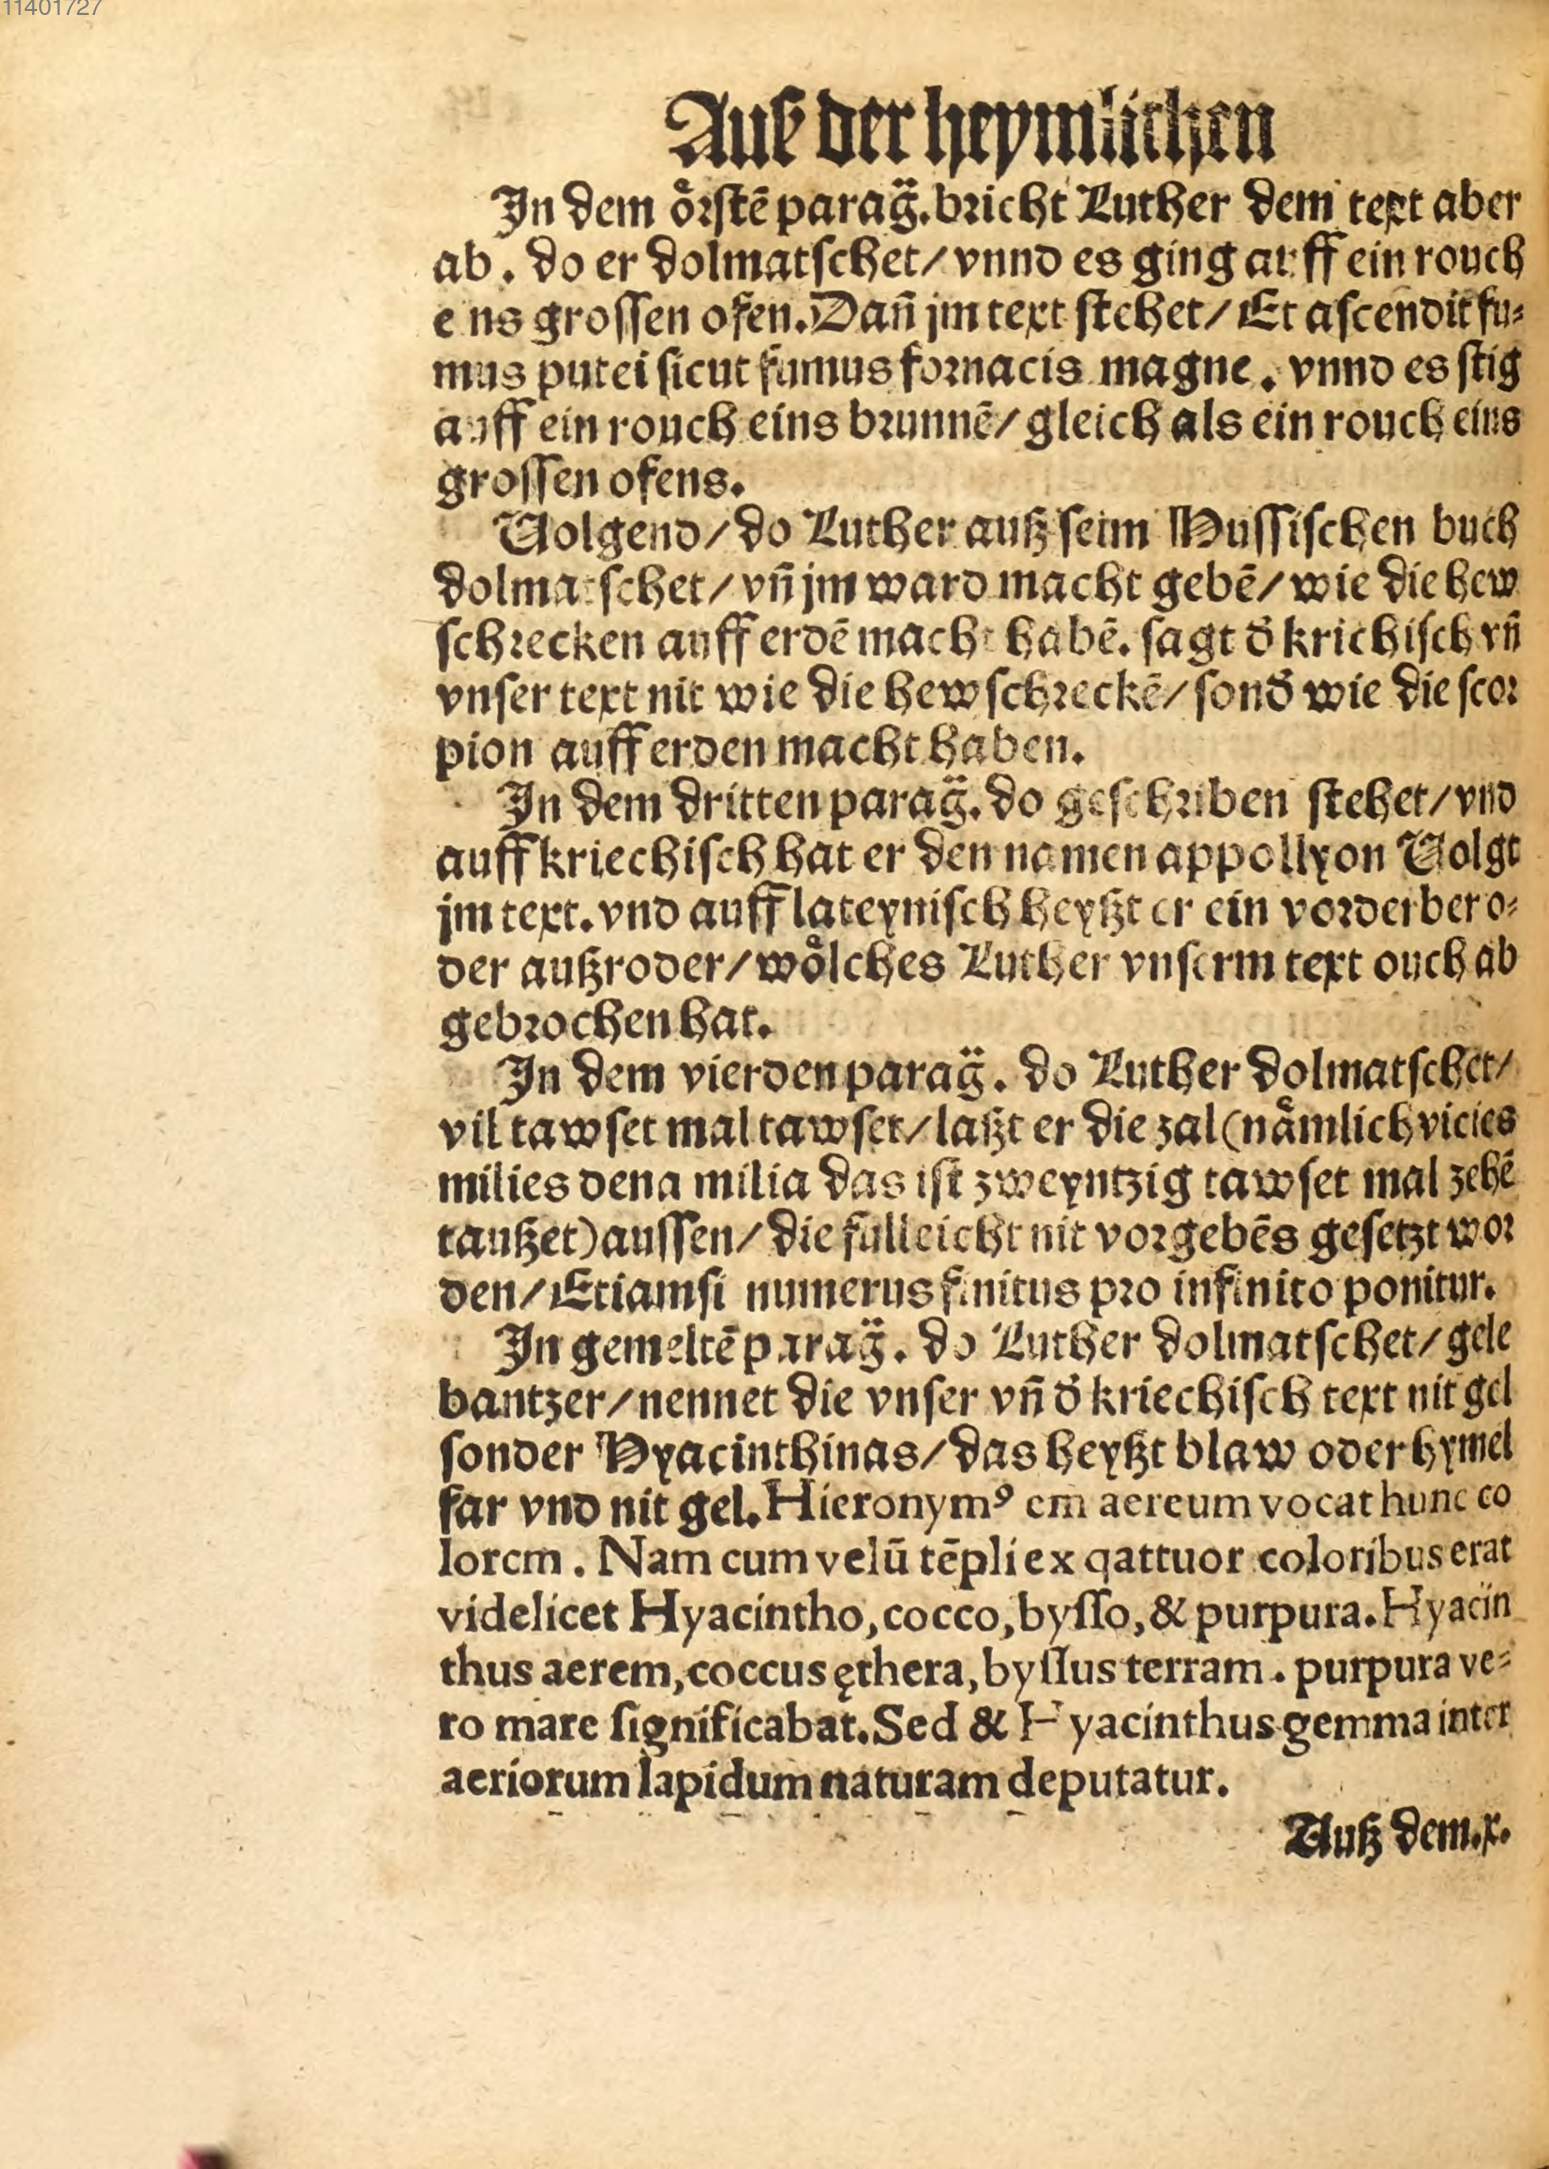 11401727
Auß der heymlichen
In dem oͤrstē parag̈. bricht Luther dem text aber
ab. do er dolmatschet/ vnnd es ging auff ein rouch
eins grossen ofen. Dañ jm text stehet/ Et ascendit fu⸗
mus putei sicut fumus fornacis magne. vnnd es stig
auff ein rouch eins brunnē/ gleich als ein rouch eins
grossen ofens.
Volgend/ do Luther auß seim Hussischen buch
dolmatschet/ vñ jm ward macht gebē/ wie die hew
schrecken auff erdē macht habē. sagt d̄ krichisch vñ
vnser text nit wie die hewschreckē/ sond̄ wie die scor
pion auff erden macht haben.
In dem dritten parag̈. do geschriben stehet/ vnd
auff kriechisch hat er den namen appollyon Volgt
jm text. vnd auff lateynisch heyßt er ein vorderber o⸗
der außroder/ woͤlches Luther vnserm text ouch ab
gebrochen hat.
In dem vierden parag̈. do Luther dolmatschet/
vil tawset mal tawset/ laßt er die zal (naͤmlich vicies
milies dena milia das ist zweyntzig tawset mal zehē
taußet) aussen/ die fulleicht nit vorgebēs gesetzt wor
den/ Etiamsi numerus finitus pro infinito ponitur.
In gemeltē parag̈. do Luther dolmatschet/ gele
bantzer/ nennet die vnser vñ d̄ kriechisch text nit gel
sonder Hyacinthinas/ das heyßt blaw oder hymel
far vnd nit gel. Hieronymꝰ em aereum vocat hunc co
lorem. Nam cum velū tēpli ex qattuor coloribus erat
videlicet Hyacintho, cocco, bysso, & purpura. Hyacin
thus aerem, coccus ęthera, byssus terram. purpura ve⸗
ro mare significabat. Sed & Hyacinthus gemma inter
aeriorum lapidum naturam deputatur.
Auß dem. x.